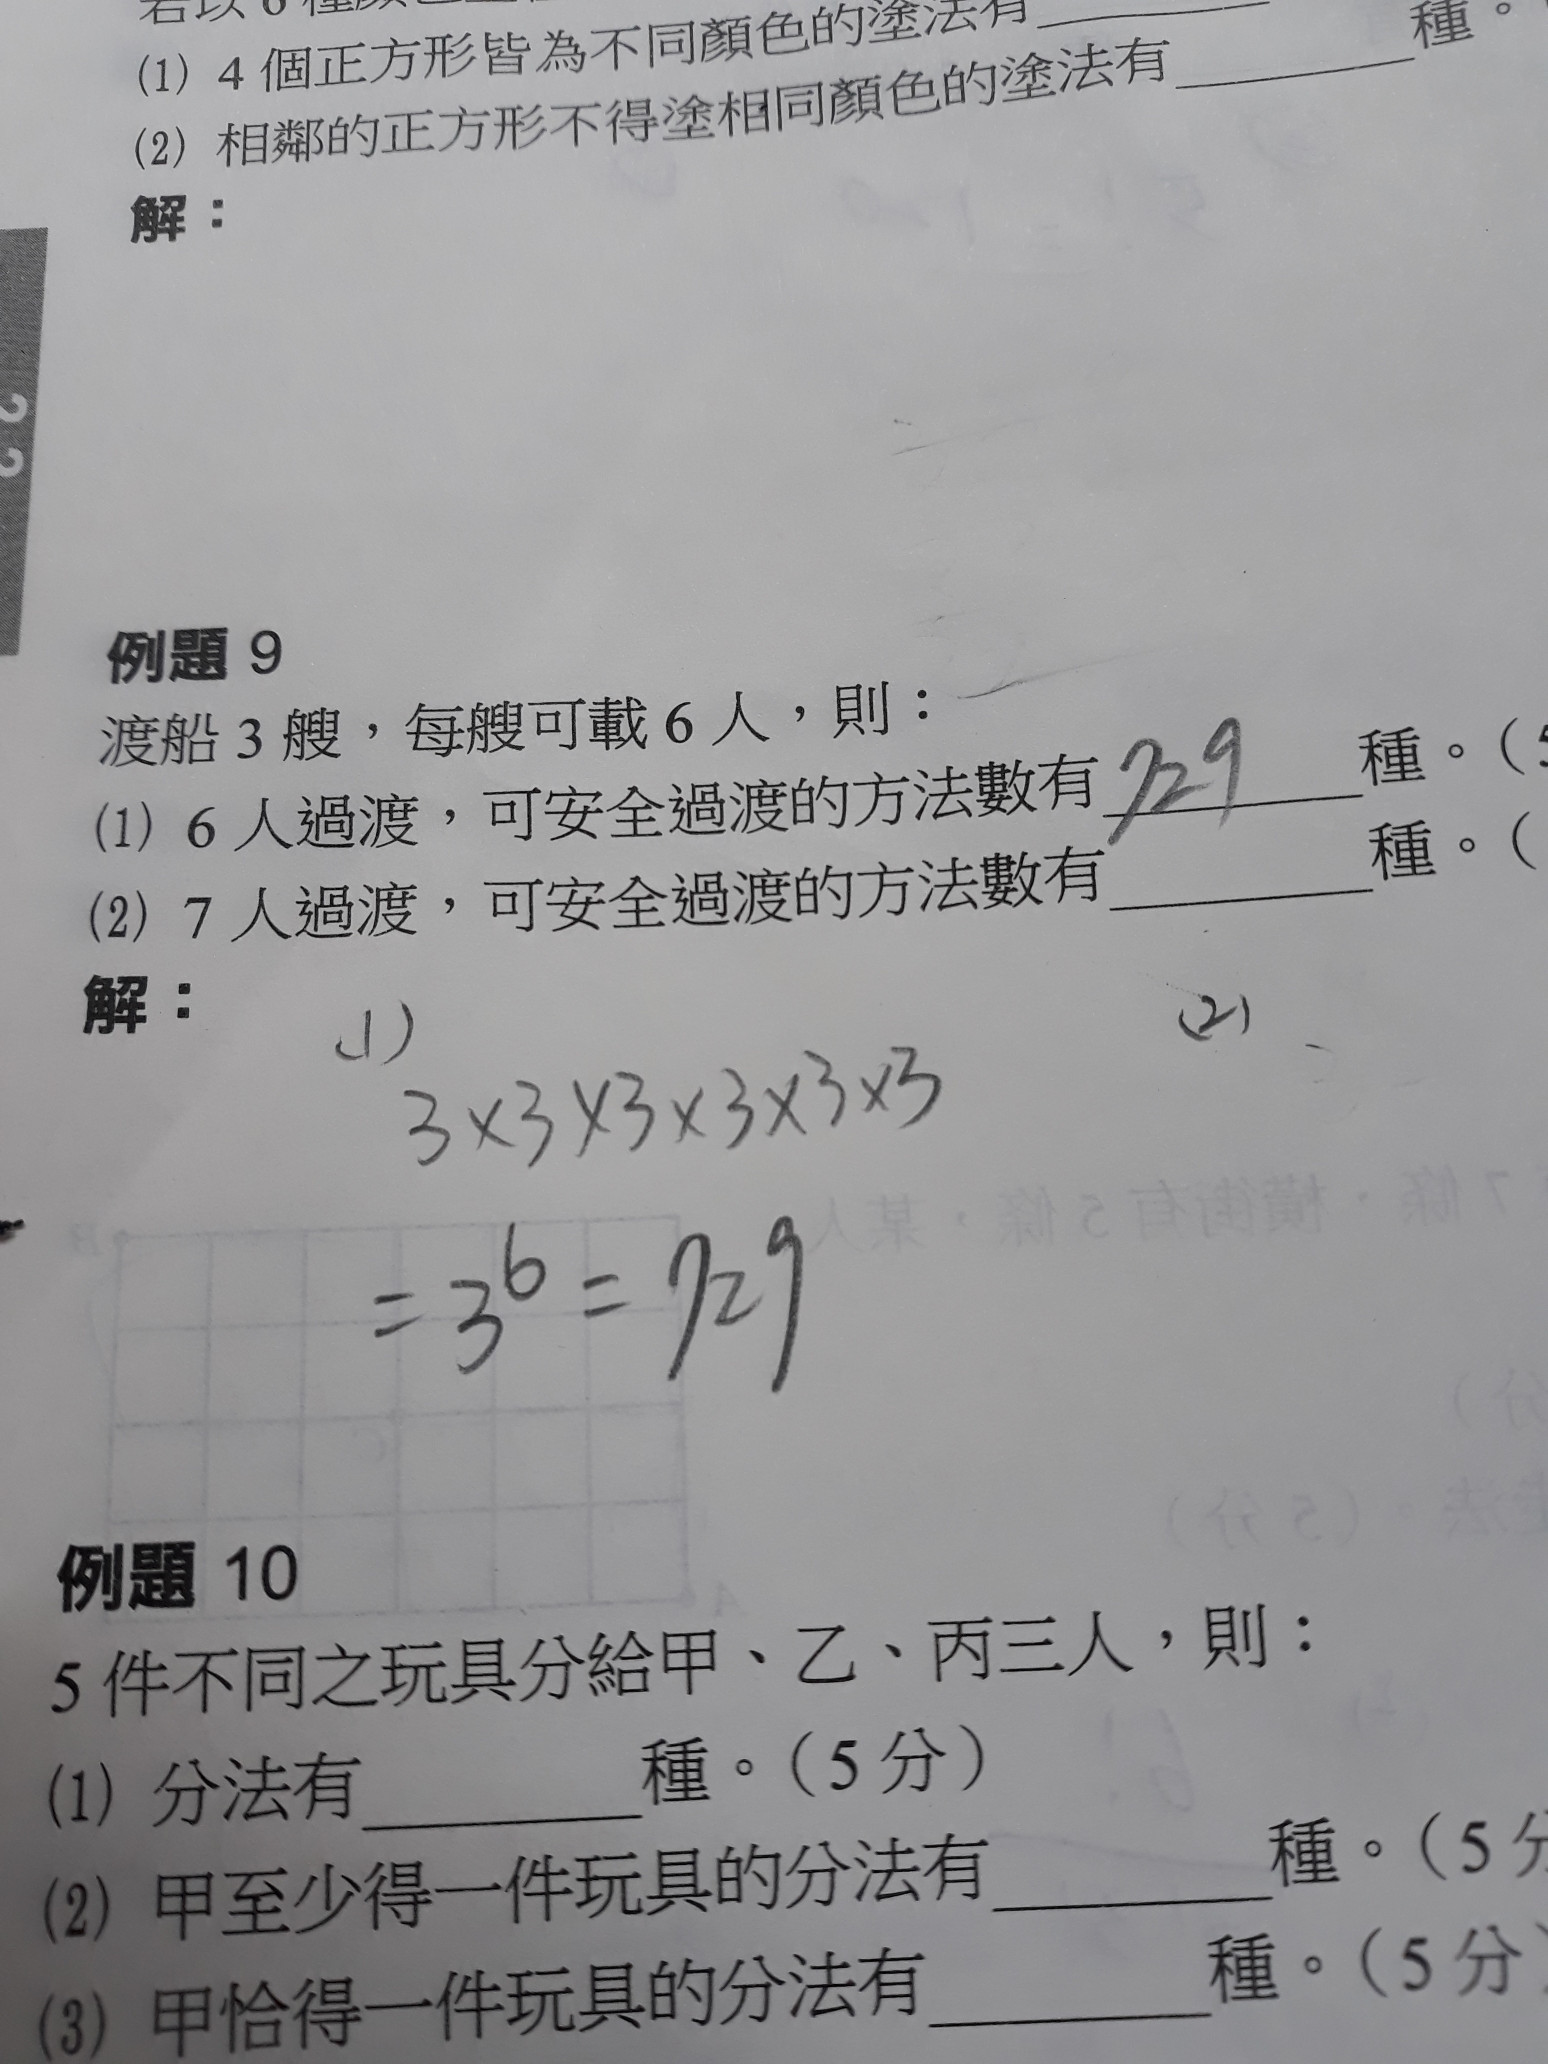 (1) 4 個正方形皆為不同顏色的塗法有
(2) 相鄰的正方形不得塗相同顏色的塗法有 種。
解：
22
例題 9
渡船 3 艘，每艘可載 6 人，則：
(1) 6 人過渡，可安全過渡的方法數有 729 種。（5
(2) 7 人過渡，可安全過渡的方法數有 種。（
解：
(1) (2)
3×3×3×3×3×3
=3⁶=729
例題 10
5 件不同之玩具分給甲、乙、丙三人，則：
(1) 分法有 種。（5 分）
(2) 甲至少得一件玩具的分法有 種。（5 分
(3) 甲恰得一件玩具的分法有 種。（5 分）